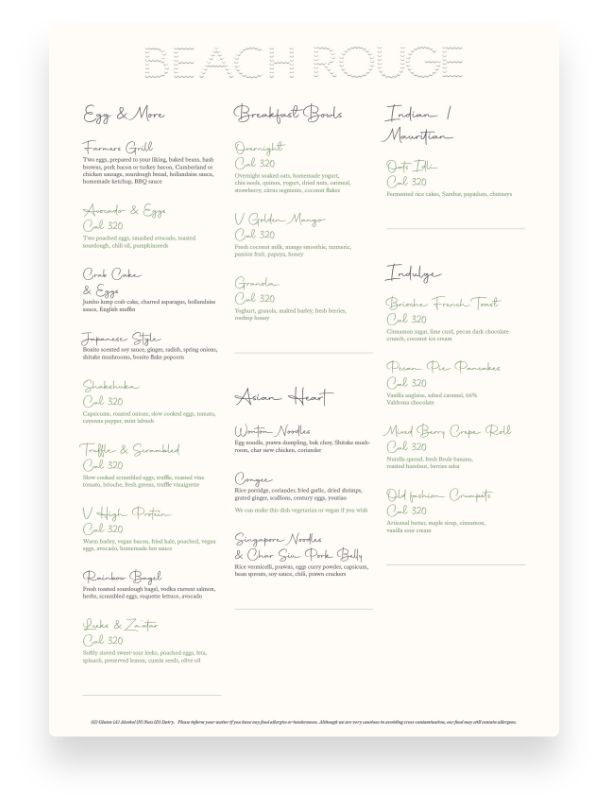 BEACH ROUGE
Egg & More
Farmers Grill
Two eggs, prepared to your liking, baked beans, hash
browns, pork bacon or turkey bacon, Cumberland or
chicken sausage, sourdough bread, hollandaise sauce,
homemade ketchup, BBQ sauce
Avocado & Eggs
Cal 320
Two poached eggs, smashed avocado, toasted
sourdough, chili oil, pumpkinseeds
Crab Cake
& Eggs
Jumbo lump crab cake, charred asparagus, hollandaise
sauce, English muffin
Japanese Style
Bonito scented soy sauce, ginger, radish, spring onions,
shitake mushrooms, bonito flake popcorn
Shakshuka
Cal 320
Capsicums, roasted onions, slow cooked eggs, tomato,
cayenna pepper, mint labneh
Truffle & Scrambled
Cal 320
Slow cooked scrambled eggs, truffle, roasted vina
tomato, brioche, fresh greens, truffle vinaigrette
V High Protein
Cal 320
Warm barley, vegan bacon, fried kale, poached, vegan
eggs, avocado, homemade hot sauce
Rainbow Bagel
Fresh toasted sourdough bagel, vodka current salmon,
herbs, scrambled eggs, roquette lettuce, avocado
Leeks & Za'atar
Cal 320
Softly stewed sweet-sour leeks, poached eggs, feta,
spinach, preserved lemon, cumin seeds, olive oil
Breakfast Bowls
Overnight
Cal 320
Overnight soaked oats, homemade yogurt,
chia seeds, quinoa, yogurt, dried nuts, oatmeal,
strawberry, citrus segments, coconut flakes
V Golden Mango
Cal 320
Fresh coconut milk, mango smoothie, turmeric,
passion fruit, papaya, honey
Granola
Cal 320
Yoghurt, granola, malted barley, fresh berries,
rooftop honey
Asian Heart
Wonton Noodles
Egg noodle, prawn dumpling, bok choy, Shitake mush-
room, char siew chicken, coriander
Congee
Rice porridge, coriander, fried garlic, dried shrimps,
grated ginger, scallions, century eggs, youtiao
We can make this dish vegetarian or vegan if you wish
Singapore Noodles
& Char Siu Pork Belly
Rice vermicelli, prawns, eggs curry powder, capsicum,
bean sprouts, soy sauce, chili, prawn crackers
Indian /
Mauritian
Oats Idli
Cal 320
Fermented rice cakes, Sambar, papadum, chutneys
Indulge
Brioche French Toast
Cal 320
Cinnamon sugar, lime curd, pecan dark chocolate
crunch, coconut ice cream
Pecan Pie Pancakes
Cal 320
Vanilla anglaise, salted caramel, 66%
Valrhona chocolate
Mixed Berry Crepe Roll
Cal 320
Nutella spread, fresh Brulé banana,
roasted hazelnut, berries salsa
Old fashion Crumpets
Cal 320
Artisanal butter, maple sirop, cinnamon,
vanilla sour cream
(G) Gluten (A) Alcohol (N) Nuts (D) Dairy. Please inform your waiter if you have any food allergies or intolerances. Although we are very cautious in avoiding cross contamination, our food may still contain allergens.